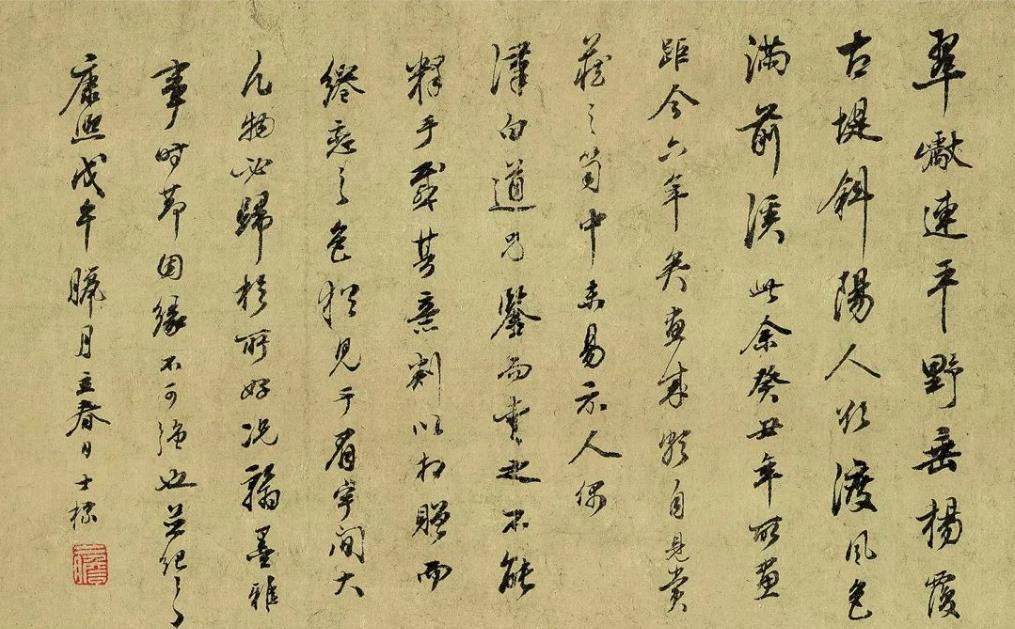 翠巘連平野垂楊覆
古堤斜陽人欲渡風色
滿前溪此余癸丑年所畫
距今六年矣畫成頗自見賞
藏之笥中未易示人偶
漢白道兄鑒而愛之不能
釋手其意割以相贈而
綣戀之色猶見于眉宇間大
凡物必歸於所好況翰墨雅
事時節因緣不可強也並紀之
康熙戊午臘月立春日士標